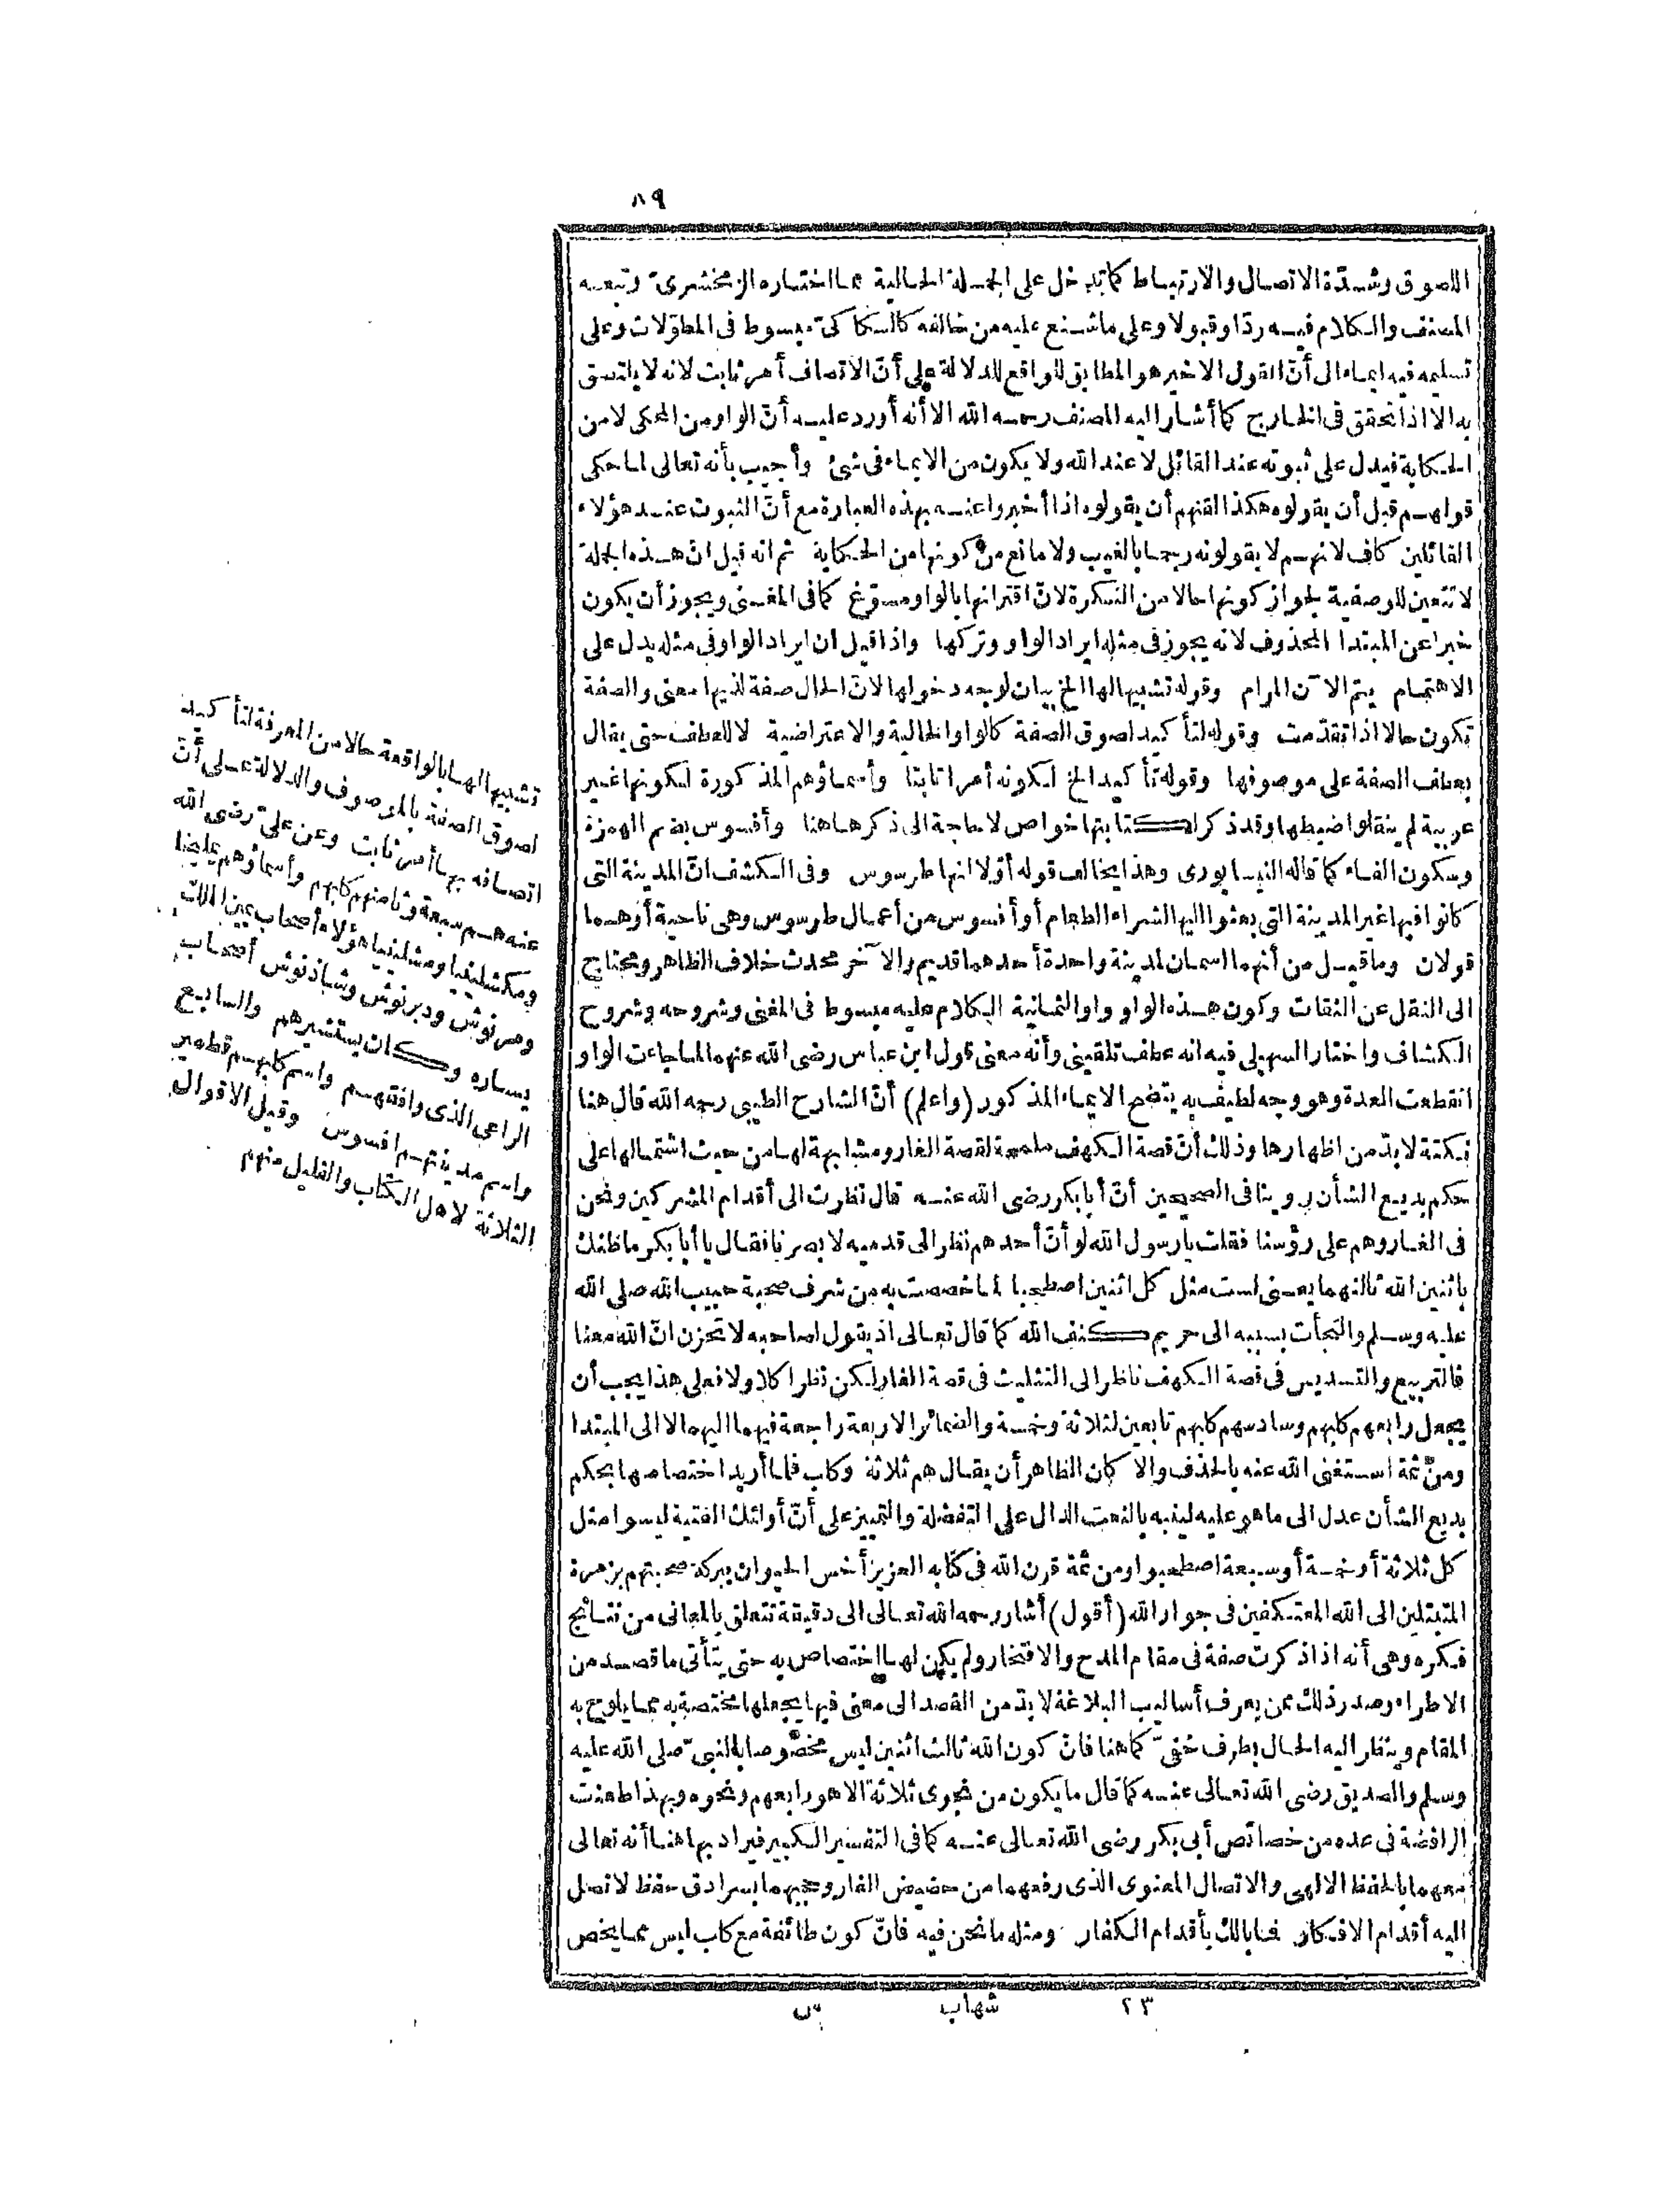 ٨٩
اللصوق وشدّة الاتصال والارتباط كما تدخل على الجملة الحالية مما اختاره الزمخشرىّ وتبعه
المصنف والكلام فيه ردّا وقبولا وعلى ما شنع عليه من خالفه كالسكاكىّ مبسوط فى المطوّلات وعلى
تسليمه فيه ايماء الى أنّ القول الاخير هو المطابق للواقع للدلالة على أنّ الاتصاف أمر ثابت لانه لا يلتصق
به الا اذا تحقق فى الخارج كما أشار اليه المصنف رحمه الله الا أنه أورد عليه أنّ الواو من المحكى لا من
الحكاية فيدل على ثبوته عند القائل لا عند الله ولا يكون من الايماء فى شئ وأجيب بأنه تعالى لما حكى
قولهم قبل أن يقولوه هكذا لقنهم أن يقولوه اذا أخبروا عنه بهذه العبارة مع أنّ الثبوت عند هؤلاء
القائلين كاف لانهم لا يقولونه رجما بالغيب ولا مانع من كونها من الحكاية ثم انه قيل انّ هذه الجملة
لا تتعين للوصفية لجواز كونها حالا من النكرة لانّ اقترانها بالواو مسوّغ كما فى المغنى ويجوز أن يكون
خبرا عن المبتدا المحذوف لانه يجوز فى مثله ايراد الواو وتركها واذا قيل ان ايراد الواو فى مثله يدل على
الاهتمام يتم الآن المرام وقوله تشبيها لها الخ بيان لوجه دخولها لانّ الحال صفة لذيها معنى والصفة
تكون حالا اذا تقدّمت وقوله لتأكيد لصوق الصفة كالواو الحالية والاعتراضية لا للعطف حتى يقال
بعطف الصفة على موصوفها وقوله تأكيد الخ لكونه أمرا ثابتا وأسماؤهم المذكورة لكونها غير
عربية لم ينقلوا ضبطها وقد ذكر لكتابتها خواص لا حاجة الى ذكرها هنا وأفسوس بضم الهمزة
وسكون الفاء كما قاله النيسابورى وهذا يخالف قوله أوّلا انها طرسوس وفى الكشف انّ المدينة التى
كانوا فيها غير المدينة التى بعثوا اليها لشراء الطعام أو أفسوس من أعمال طرسوس وهى ناحية أو هما
قولان وما قيل من أنهما اسمان لمدينة واحدة أحدهما قديم والآخر محدث خلاف الظاهر ومحتاج
الى النقل عن الثقات وكون هذه الواو واو الثمانية الكلام عليه مبسوط فى المغنى وشروحه وشروح
الكشاف واختار السهيلى فيه انه عطف تلقينى وأنه معنى قول ابن عباس رضى الله عنهما لما جاءت الواو
انقطعت العدة وهو وجه لطيف به يتضح الايماء المذكور (واعلم) أنّ الشارح الطيبى رحمه الله قال هنا
نكتة لا بدّ من اظهارها وذلك أنّ قصة الكهف ملمحة لقصة الغار ومشابهة لها من حيث اشتمالها على
حكم بديع الشأن روينا فى الصحيحين أنّ أبا بكر رضى الله عنه قال نظرت الى أقدام المشركين ونحن
فى الغار وهم على رؤسنا فقلت يا رسول الله لو أنّ أحدهم نظر الى قدميه لابصرنا فقال يا أبا بكر ما ظنك
باثنين الله ثالثهما يعنى لست مثل كل اثنين اصطحبا لما خصصت به من شرف صحبة حبيب الله صلى الله
عليه وسلم والتجأت بسببه الى حريم كنف الله كما قال تعالى اذ يقول لصاحبه لا تحزن انّ الله معنا
فالتربيع والتسديس فى قصة الكهف ناظر الى التثليث فى قصة الغار لكن نظرا كلا ولا فعلى هذا يجب أن
يجعل رابعهم كلبهم وسادسهم كلبهم تابعين لثلاثة وخمسة والضمائر الاربعة راجعة فيهما اليهما لا الى المبتدا
ومن ثمة استغنى الله عنه بالحذف والا كان الظاهر أن يقال هم ثلاثة وكلب فلما أريد اختصاصها بحكم
بديع الشأن عدل الى ما هو عليه لينبه بالنعت الدال على التفضلة والتمييز على أنّ أولئك الفتية ليسوا مثل
كل ثلاثة أو خمسة أو سبعة اصطحبوا ومن ثمة قرن الله فى كتابه العزيز أخس الحيوان ببركة صحبتهم بزمرة
المتبتلين الى الله المعتكفين فى جوار الله (أقول) أشار رحمه الله تعالى الى دقيقة تتعلق بالمعانى من نتائج
فكره وهى أنه اذا ذكرت صفة فى مقام المدح والافتخار ولم يكن لها اختصاص به حتى يتأتى ما قصد من
الاطراء وصدر ذلك ممن يعرف أساليب البلاغة لا بدّ من القصد الى معنى فيها يجعلها مختصة به مما يلوح به
المقام وينظر اليه الحال بطرف خفىّ كما هنا فانّ كون الله ثالث اثنين ليس مخصوصا بالنبىّ صلى الله عليه
وسلم والصديق رضى الله تعالى عنه كما قال ما يكون من نجوى ثلاثة الا هو رابعهم ونحوه وبهذا طعنت
الرافضة فى عده من خصائص أبى بكر رضى الله تعالى عنه كما فى التفسير الكبير فيراد بها هنا أنه تعالى
معهما بالحفظ الالهى والاتصال المعنوى الذى رفعهما من حضيض الغار وحجبهما بسرادق حفظ لا تصل
اليه أقدام الافكار فما بالك بأقدام الكفار ومثله ما نحن فيه فانّ كون طائفة مع كلب ليس مما يخص
تشبيها لها بالواقعة حالا من المعرفة لتأكيد
لصوق الصفة بالموصوف والدلالة على أنّ
اتصافه بها أمر ثابت وعن علىّ رضى الله
عنه هم سبعة وثامنهم كلبهم وأسماؤهم يمليخا
ومكشلينيا ومشلينيا هؤلاء أصحاب يمين الملك
ومرنوش ودبرنوش وشاذنوش أصحاب
يساره وكان يستشيرهم والسابع
الراعى الذى وافقهم واسم كلبهم قطمير
واسم مدينتهم افسوس وقيل الاقوال
الثلاثة لاهل الكتاب والقليل منهم
٢٣ شهاب س